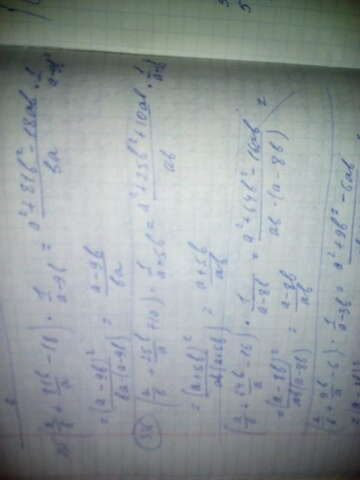 (a/b + 81b/a - 18) · 1/(a-9b) = (a²+81b²-18ab)/ba · 1/(a-9b)
= (a-9b)²/(ba(a-9b)) = (a-9b)/ba
(a/b + 25b/a + 10) · 1/(a+5b) = (a²+25b²+10ab)/ab · 1/(a+5b)
= (a+5b)²/(ab(a+5b)) = (a+5b)/ab
(a/b + 64b/a - 16) · 1/(a-8b) = (a²+64b²-16ab)/(ab·(a-8b)) =
= (a-8b)²/(ab(a-8b)) = (a-8b)/ab
(a/b + 9b/a - 6) · 1/(a-3b) = (a²+9b²-6ab